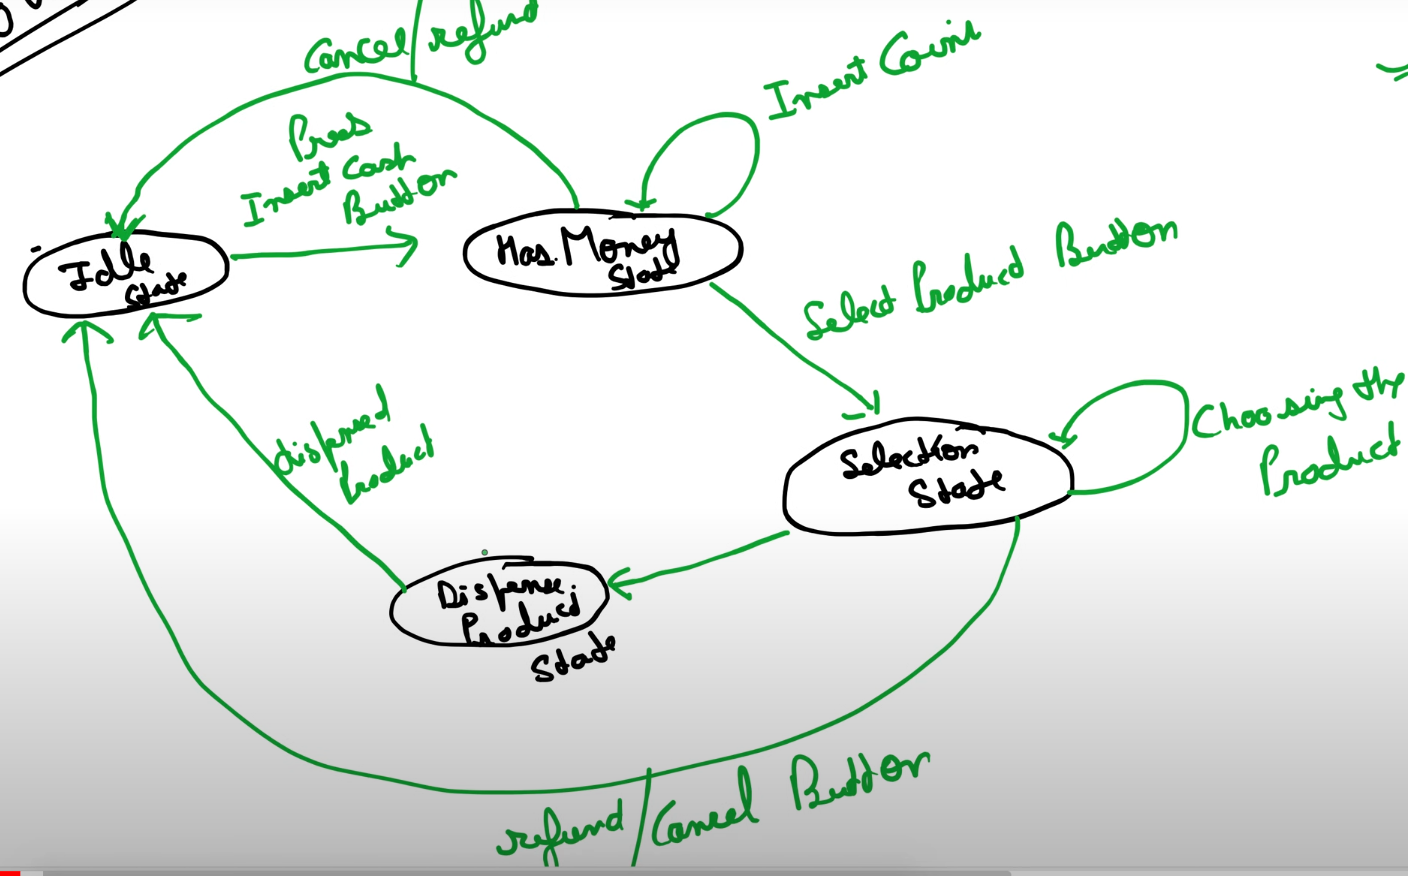 Cancel/refund
Insert Coins
Press
Insert Cash
Button
Idle
State
Has Money
State
Select Product Button
Choosing the
Product
Selection
State
dispensed
Product
Dispense
Product
State
refund/Cancel Button